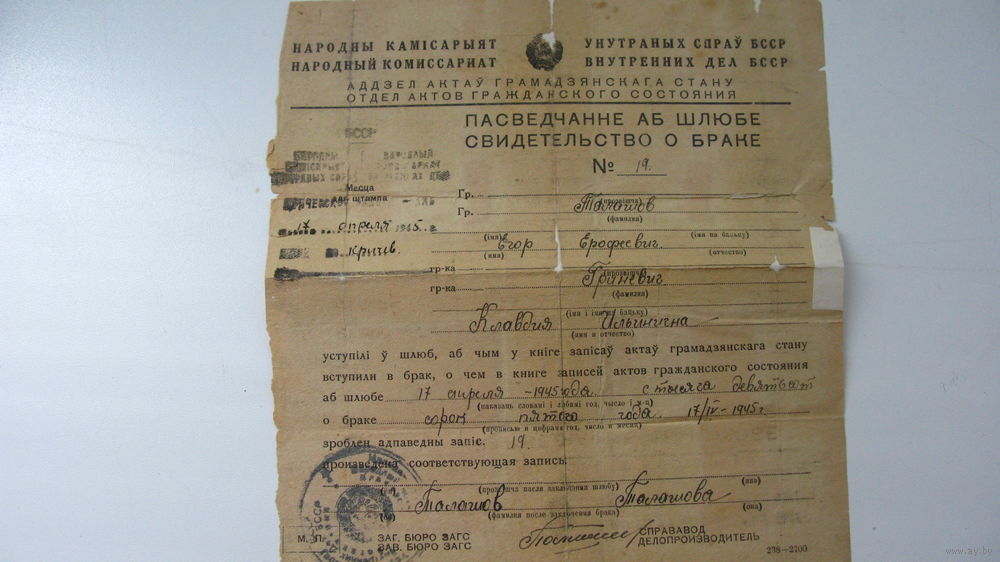 НАРОДНЫ КАМІСАРЫЯТ УНУТРАНЫХ СПРАЎ БССР
НАРОДНЫЙ КОМИССАРИАТ ВНУТРЕННИХ ДЕЛ БССР
АДДЗЕЛ АКТАЎ ГРАМАДЗЯНСКАГА СТАНУ
ОТДЕЛ АКТОВ ГРАЖДАНСКОГО СОСТОЯНИЯ
ПАСВЕДЧАННЕ АБ ШЛЮБЕ
СВИДЕТЕЛЬСТВО О БРАКЕ
№ 19.
БССР
Месца
штампа
17 апреля 1945 г.
Кричев.
Гр.
Гр. Талашов
(фамилия)
(імя) (імя па бацьку)
Егор Ерофеевич.
(имя) (отчество)
гр-ка
гр-ка Гриневич
(фамилия)
(імя і імя па бацьку)
Клавдия Ильинична
(имя и отчество)
уступілі ў шлюб, аб чым у кнізе запісаў актаў грамадзянскага стану
вступили в брак, о чем в книге записей актов гражданского состояния
аб шлюбе 17 апреля - 1945 года. тысяча девятьсот
(паказаць словамі і лічбамі год, чысло і м-ц)
о браке сорок пятого года. 17/IV - 1945 г
(прописью и цифрами год, число и месяц)
зроблен адпаведны запіс. 19.
произведена соответствующая запись.
(прозвішча пасля заключэння шлюбу) (яна)
Талашов Талашова
(он) (фамилия после заключения брака) (она)
М. П. ЗАГ. БЮРО ЗАГС СПРАВАВОД
ЗАВ. БЮРО ЗАГС ДЕЛОПРОИЗВОДИТЕЛЬ
238—2700
www.ay.by